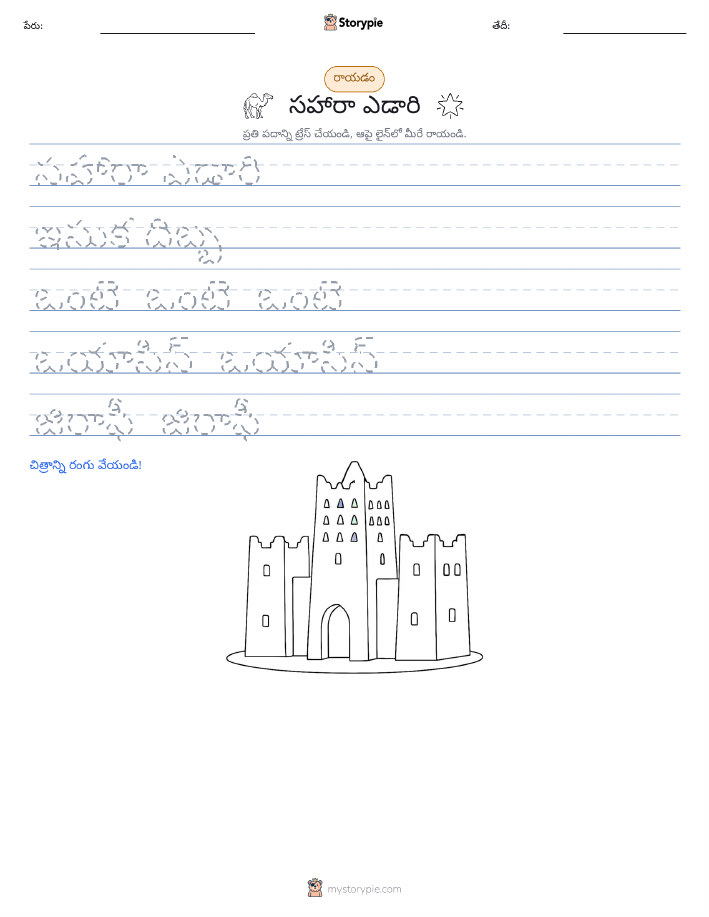 పేరు:
Storypie
తేదీ:
రాయడం
సహారా ఎడారి
ప్రతి పదాన్ని ట్రేస్ చేయండి, ఆపై లైన్‌లో మీరే రాయండి.
సహారా ఎడారి
ఇసుక దిబ్బ
ఒంటె ఒంటె ఒంటె
ఒయాసిస్ ఒయాసిస్
జిరాఫీ జిరాఫీ
చిత్రాన్ని రంగు వేయండి!
mystorypie.com